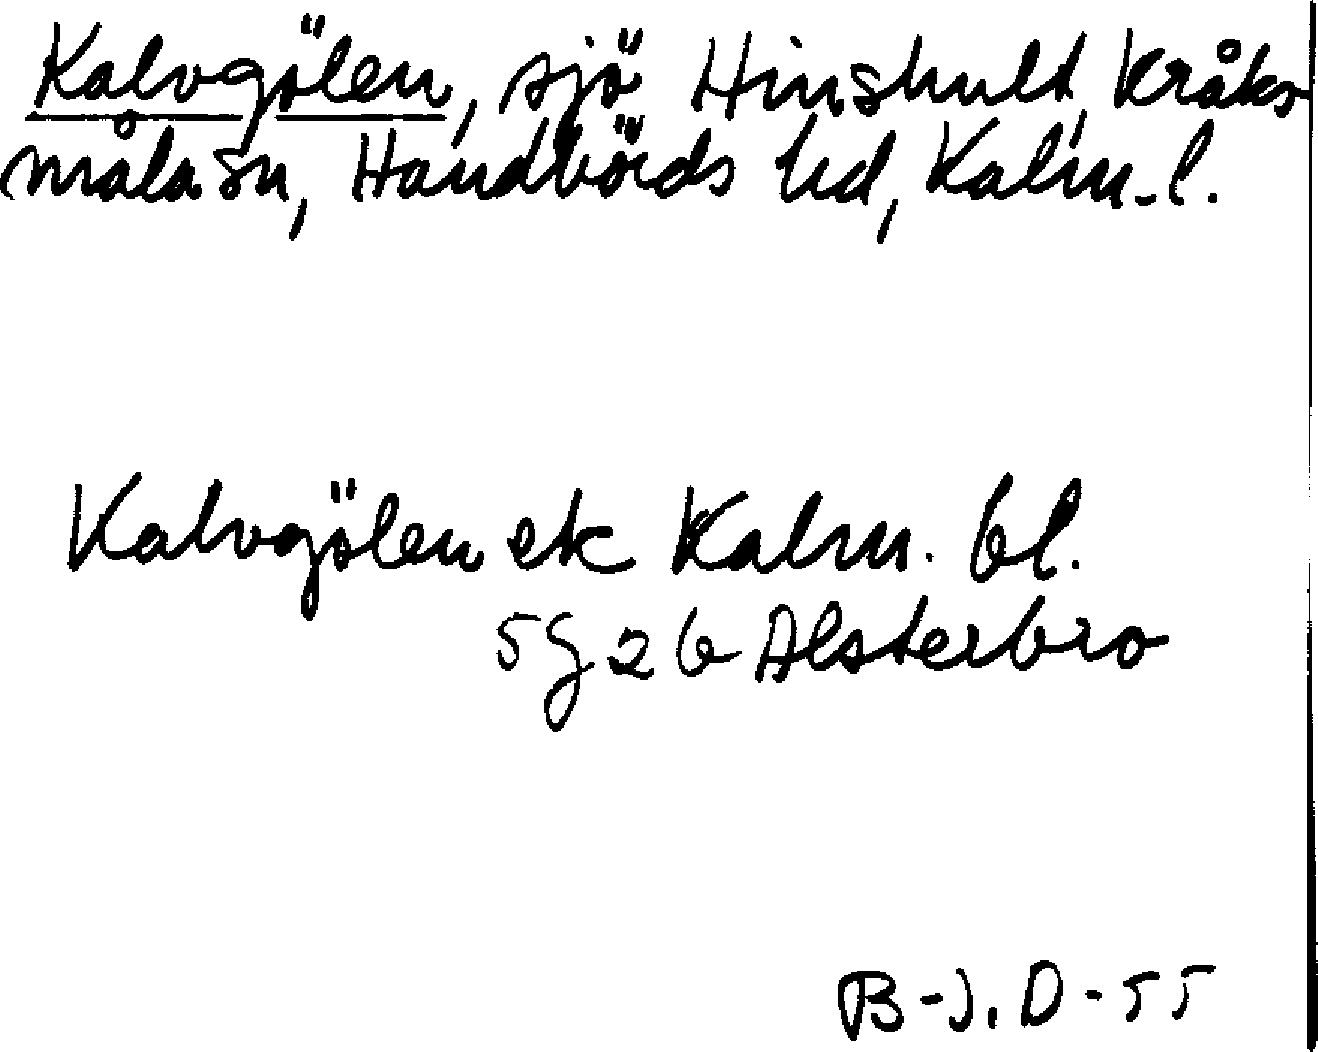 Kalvgölen, sjö Hinshult, Kråks-
måla sn, Handbörds hd, Kalm. l.
Kalvgölen ek Kalm. bl.
5g 2b Alsterbro
B-J. D-55